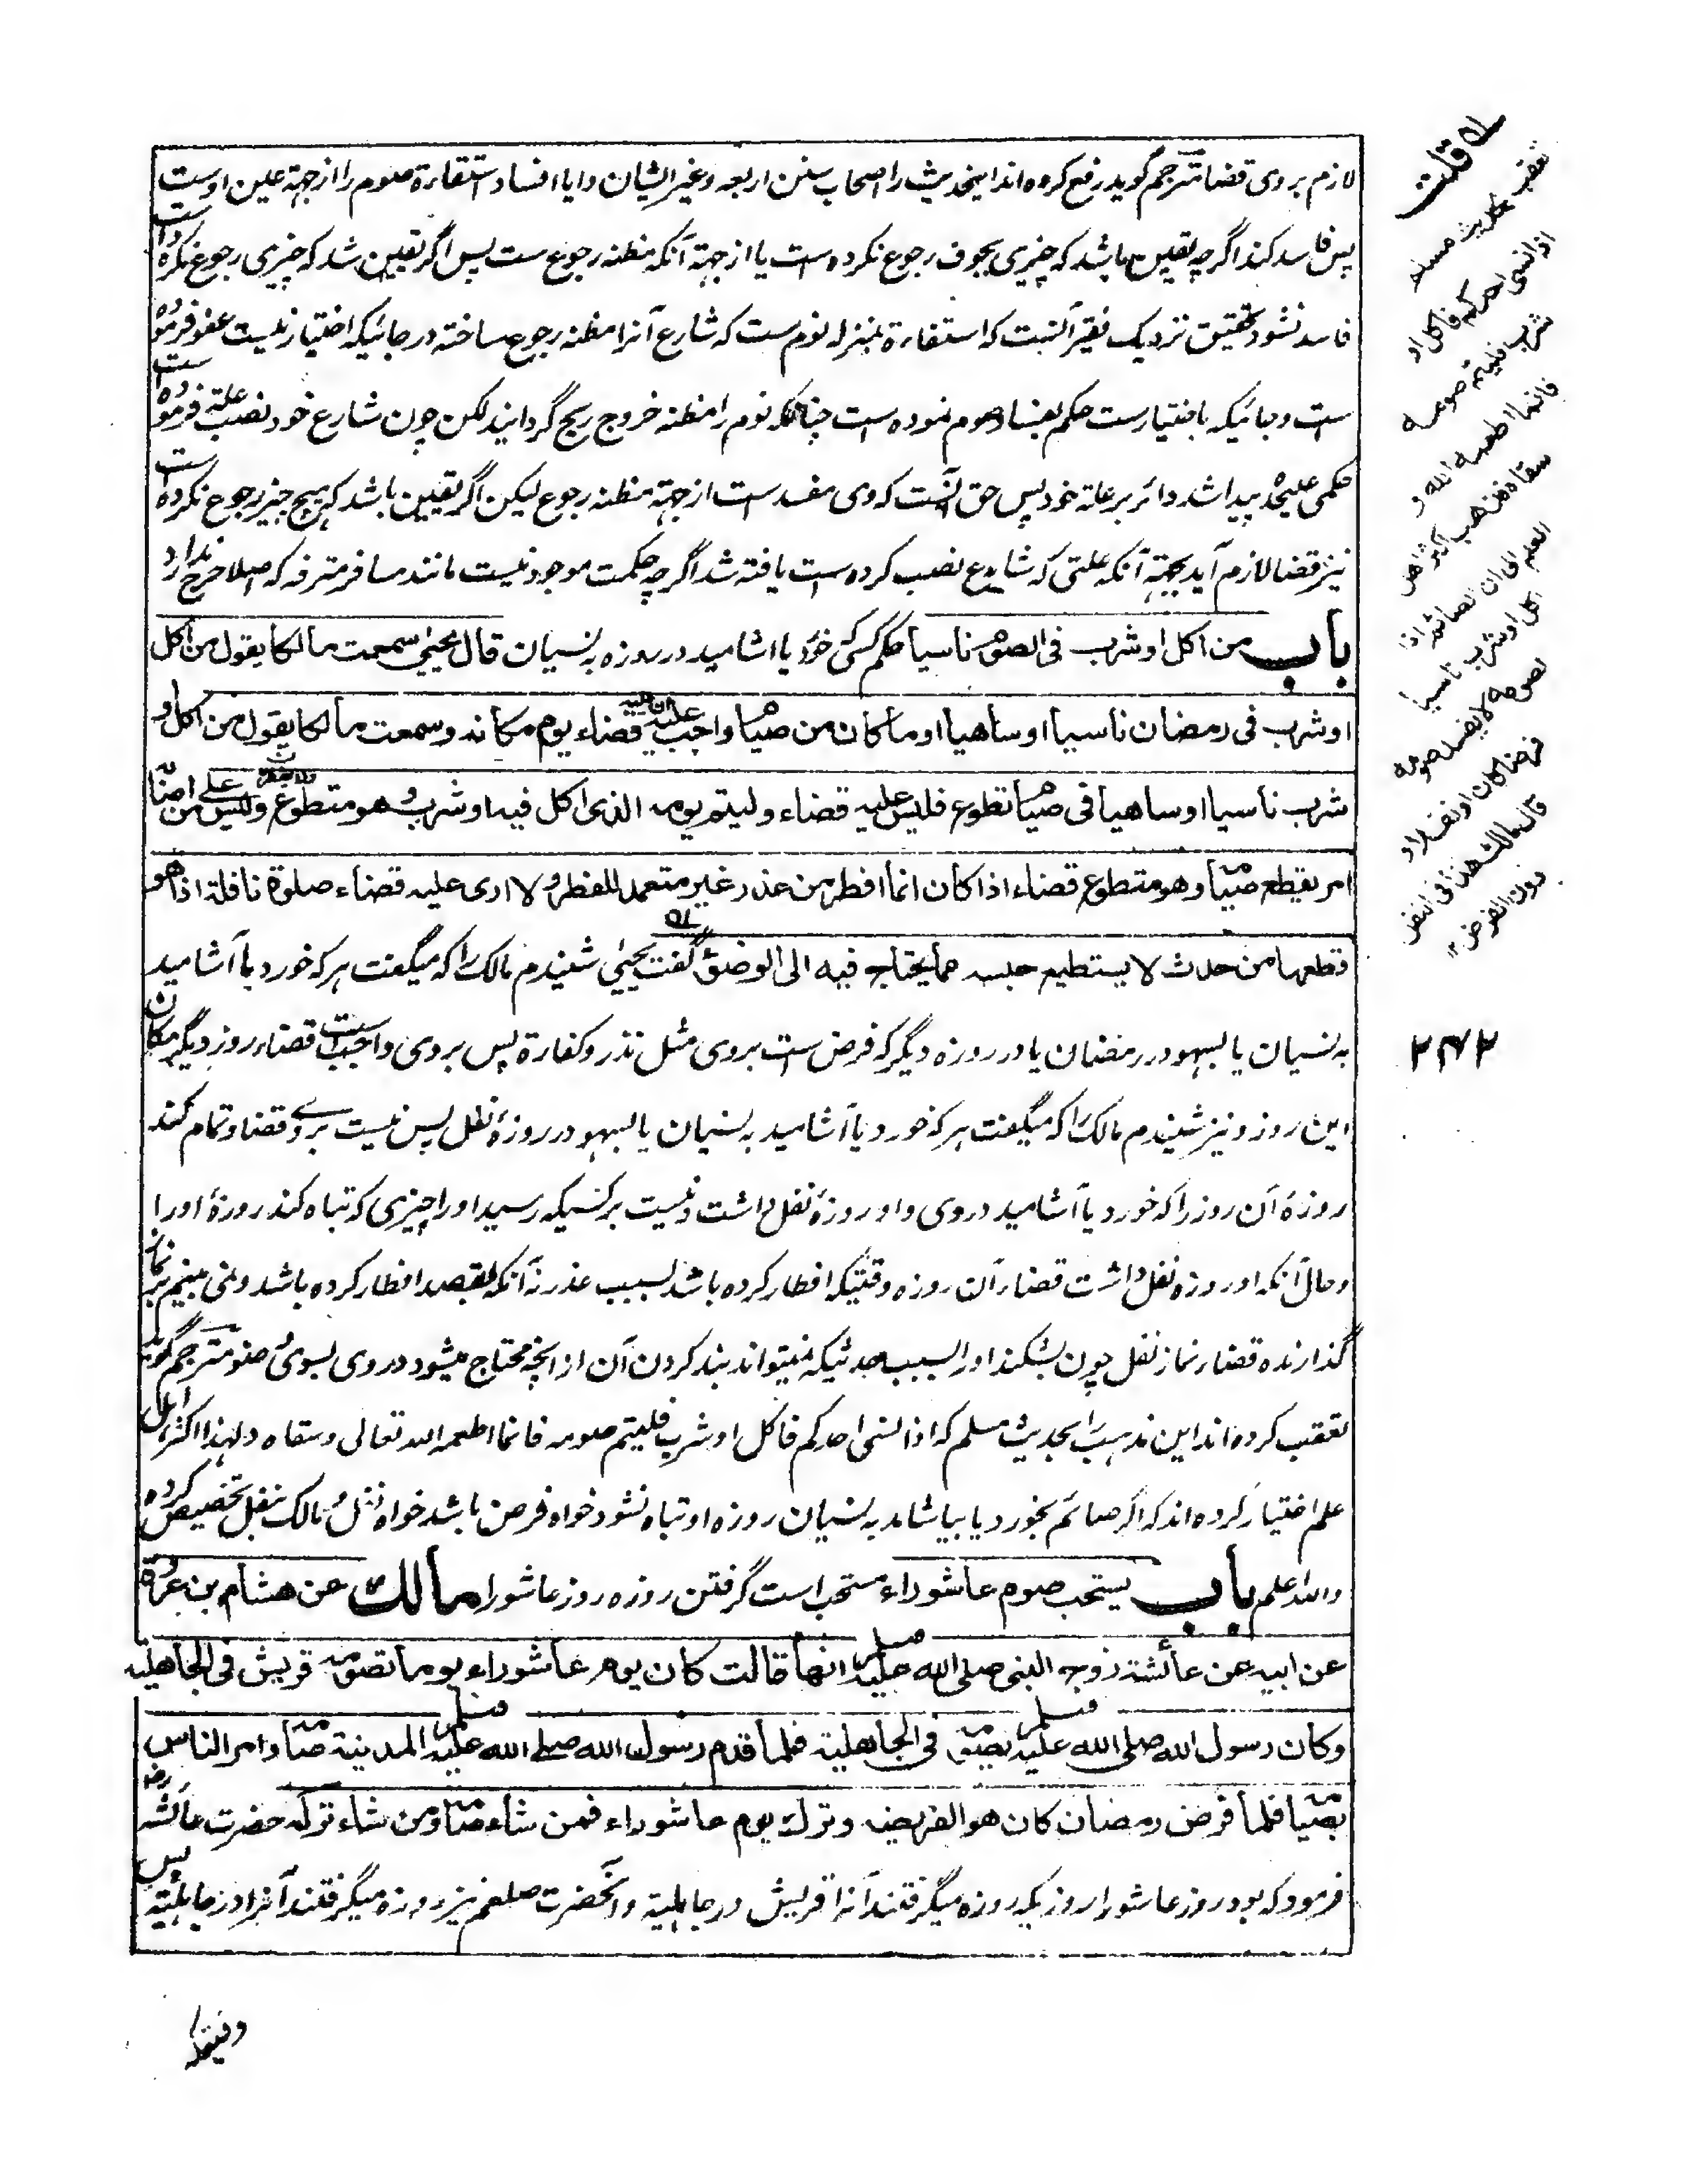 لازم بروی قضا مترجم گوید رفع کرده اند اینحدیث را اصحاب سنن اربعه وغیر ایشان وایا افساد استقاءة صوم را از جهة عین اوست
پس فاسد کند اگرچه یقین باشد که چیزی بجوف رجوع نکرده است یا از جهة آنکه مظنه رجوع ست پس اگر یقین شد که چیزی رجوع نکرده است
فاسد نشود تحقیق نزدیک فقیر آنست که استقاءة بمنزله نوم ست که شارع آنرا مظنه رجوع ساخته در جائیکه اختیار نیست عفو فرموده
است وجائیکه باختیارست حکم بفساد صوم نموده است چنانکه نوم را مظنه خروج ریح گردانید لکن چون شارع خود نصب علته فرموده است
حکمی علیحده پیدا شد دائر بر علة خود پس حق آنست که وی مفسد ست از جهة مظنه رجوع لیکن اگر یقین باشد که هیچ چیز رجوع نکرده است
نیز قضا لازم آید بجهة آنکه علتی که شارع نصب کرده است یافته شد اگرچه حکمت موجود نیست مانند مسافر مترفه که اصلا حرج ندارد
باب من اکل او شرب فی الصوم ناسیا حکم کسی که خورد یا اشامید در روزه به نسیان قال یحیی سمعت مالکا یقول من اکل
او شرب فی رمضان ناسیا او ساهیا او ما کان من صیام واجب علیه ان علیه قضاء یوم مکانه وسمعت مالکا یقول من اکل او
شرب ناسیا او ساهیا فی صیام تطوع فلیس علیه قضاء ولیتم یومه الذی اکل فیه او شرب وهو متطوع ولا یفطره ولیس علی من اصابه
امر یقطع صیامه وهو متطوع قضاء اذا کان انما افطر من عذر غیر متعمد للفطر ولا اری علیه قضاء صلوة نافلة اذا هو
قطعها من حدث لا یستطیع حبسه مما یحتاج فیه الی الوضوء گفت یحیی شنیدم مالک را که میگفت هر که خورد یا آشامید
به نسیان یا بسهو در رمضان یا در روزه دیگر که فرض ست بروی مثل نذر وکفارة پس بروی واجب است قضاء روز دیگر مکان
این روز ونیز شنیدم مالک را که میگفت هر که خورد یا آشامید به نسیان یا بسهو در روزهٔ نفل پس نیست بروے قضا وتمام کند
روزهٔ آن روز را که خورد یا آشامید در وی واو روزهٔ نفل داشت ونیست بر کسیکه رسید او را چیزی که تباه کند روزهٔ او را
وحال آنکه او روزه نفل داشت قضاء آن روزه وقتیکه افطار کرده باشد بسبب عذر نه آنکه بقصد افطار کرده باشد ونمی بینم بر نماز
گذارنده قضاء نماز نفل چون بشکند او را بسبب حدثیکه نمیتواند بند کردن آن از انچه محتاج میشود در وی بسوی وضو مترجم گوید
تعقب کرده اند این مذهب را بحدیث مسلم که اذا نسی احدکم فاکل او شرب فلیتم صومه فانما اطعمه الله تعالی وسقاه ولهذا اکثر اهل
علم اختیار کرده اند که اگر صائم بخورد یا بیاشامد به نسیان روزه او تباه نشود خواه فرض باشد خواه نفل ومالک بنفل تخصیص کرده
والله اعلم باب یستحب صوم عاشوراء مستحب است گرفتن روزه روز عاشورا مالك عن هشام بن عروة
عن ابیه عن عائشة زوج النبی صلی الله علیه وسلم انها قالت کان یوم عاشوراء یوما تصومه قریش فی الجاهلیة
وکان رسول الله صلی الله علیه وسلم یصومه فی الجاهلیة فلما قدم رسول الله صلی الله علیه وسلم المدینة صامه وامر الناس
بصیامه فلما فرض رمضان کان هو الفریضة وترك یوم عاشوراء فمن شاء صامه ومن شاء ترکه حضرت عائشه رض
فرمود که بود روز عاشورا روزیکه روزه میگرفتند آنرا قریش در جاهلیة وآنحضرت صلعم نیز روزه میگرفتند آنرا در جاهلیة پس
له قلت
تعقب بحدیث مسلم
اذا نسی احدکم فاکل او
شرب فلیتم صومه
فانما اطعمه الله و
سقاه فذهب اکثر اهل
العلم الی ان الصائم اذا
اکل او شرب ناسیا
لصومه لا یفسد صومه
فرضا کان او نفلا و
قال مالك هذا فی النفل
دون الفرض ۱۲
۲۴۲